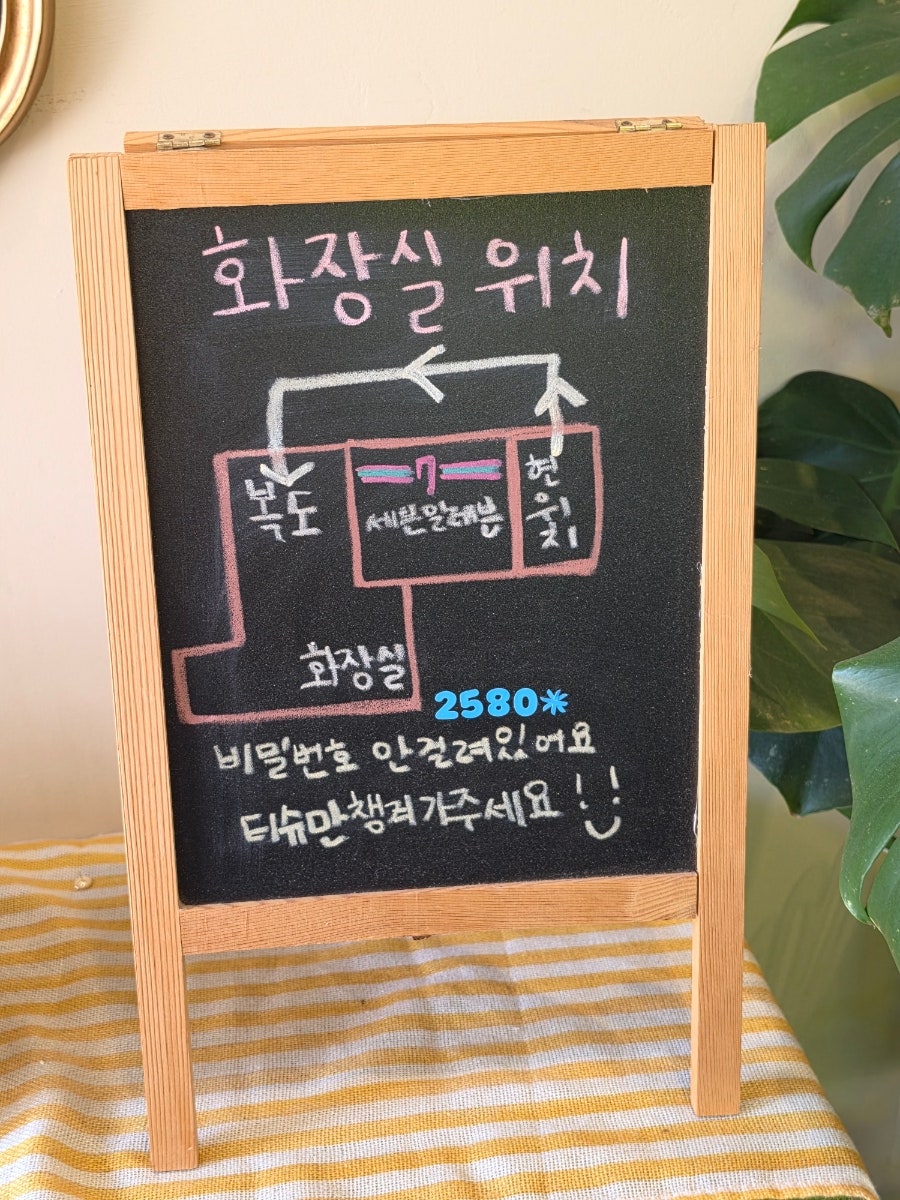 화장실 위치
복도
7
세븐일레븐
현
위치
화장실
2580*
비밀번호 안걸려있어요
티슈만챙겨가주세요!!